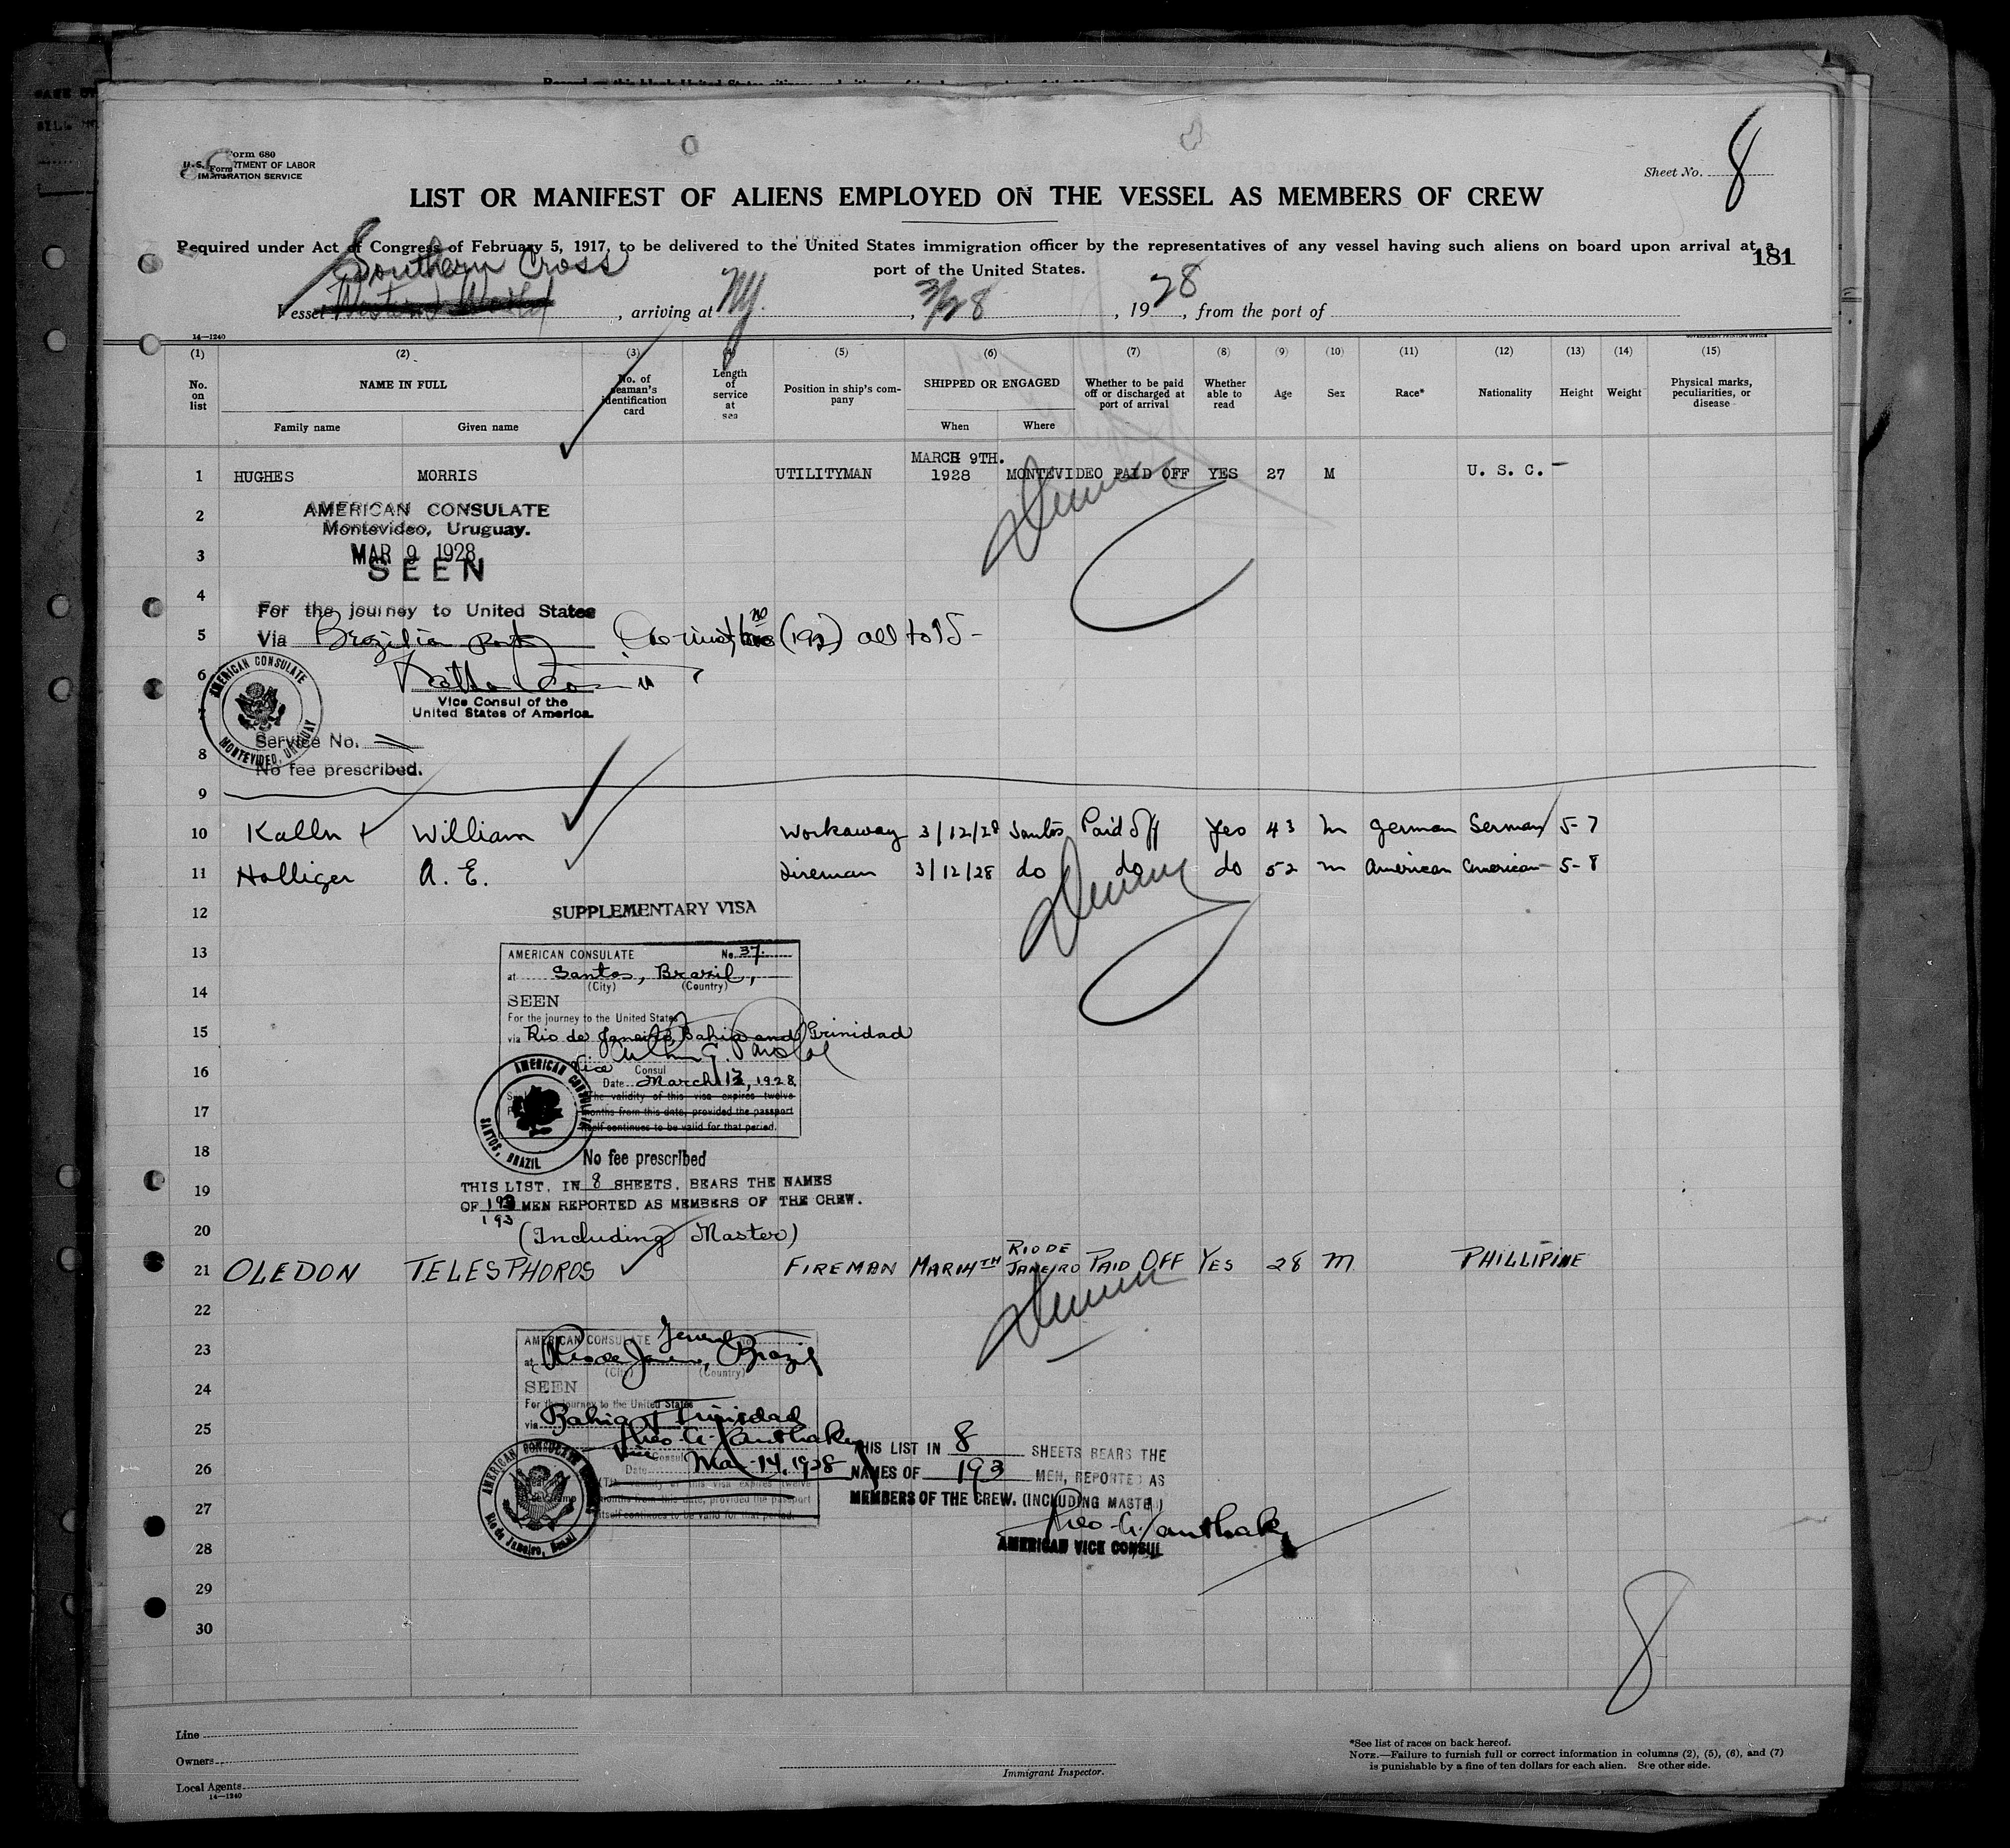 Form 680
U. S. DEPARTMENT OF LABOR
IMMIGRATION SERVICE
Sheet No. 8
LIST OR MANIFEST OF ALIENS EMPLOYED ON THE VESSEL AS MEMBERS OF CREW
Required under Act of Congress of February 5, 1917, to be delivered to the United States immigration officer by the representatives of any vessel having such aliens on board upon arrival at a
port of the United States.
181
Southern Cross
Vessel Western World, arriving at NY., 3/28, 1928, from the port of
14—1240
GOVERNMENT PRINTING OFFICE
(1) (2) (3) (4) (5) (6) (7) (8) (9) (10) (11) (12) (13) (14) (15)
No. on list NAME IN FULL No. of seaman's identification card Length of service at sea Position in ship's company SHIPPED OR ENGAGED Whether to be paid off or discharged at port of arrival Whether able to read Age Sex Race* Nationality Height Weight Physical marks, peculiarities, or disease
Family name Given name When Where
1 HUGHES MORRIS UTILITYMAN MARCH 9TH. 1928 MONTEVIDEO PAID OFF YES 27 M U. S. C. —
2 AMERICAN CONSULATE
Montevideo, Uruguay.
3 MAR 9 1928
SEEN
4
For the journey to United States
5 Via Brazilian ports (192) all told -
6
7 Vice Consul of the
United States of America.
AMERICAN CONSULATE MONTEVIDEO, URUGUAY
Service No.
8
No fee prescribed.
9
10 Kalln William Workaway 3/12/28 Santos Paid off Yes 43 M German German 5-7
11 Holliger A. E. Fireman 3/12/28 do do do 52 M American American 5-8
12 SUPPLEMENTARY VISA
13 AMERICAN CONSULATE No. 37.
at Santos, Brazil,
(City) (Country)
14 SEEN
For the journey to the United States
15 via Rio de Janeiro, Bahia and Trinidad
16 Vice Consul
Date March 13, 1928
The validity of this visa expires twelve
17 months from this date, provided the passport
itself continues to be valid for that period.
AMERICAN CONSULATE SANTOS, BRAZIL
18 No fee prescribed
19 THIS LIST, IN 8 SHEETS, BEARS THE NAMES
OF 193 MEN REPORTED AS MEMBERS OF THE CREW.
193
20 (Including Master)
21 OLEDON TELESPHOROS FIREMAN MAR 14TH RIO DE JANEIRO PAID OFF YES 28 M PHILLIPINE
22
23 AMERICAN CONSULATE General No.
at Rio de Janeiro, Brazil
(City) (Country)
24 SEEN
For the journey to the United States
25 via Bahia & Trinidad
Theo. A. Xanthaky
Vice Consul
26 Date Mar. 14, 1928
The validity of this visa expires twelve
27 months from this date, provided the passport
itself continues to be valid for that period.
AMERICAN CONSULATE GENERAL Rio de Janeiro, Brazil
THIS LIST IN 8 SHEETS BEARS THE
NAMES OF 193 MEN, REPORTED AS
MEMBERS OF THE CREW. (INCLUDING MASTER)
Theo. A. Xanthaky
28 AMERICAN VICE CONSUL
29
30
8
Line
Owners
Local Agents
14—1240
Immigrant Inspector.
*See list of races on back hereof.
NOTE.—Failure to furnish full or correct information in columns (2), (5), (6), and (7)
is punishable by a fine of ten dollars for each alien. See other side.